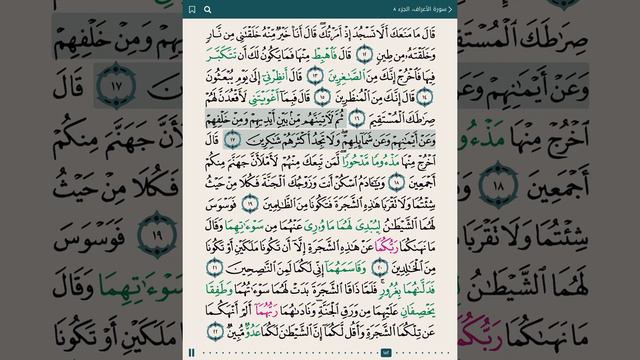 سورة الأعراف، الجزء ٨
قَالَ مَا مَنَعَكَ أَلَّا تَسْجُدَ إِذْ أَمَرْتُكَ ۖ قَالَ أَنَا۠ خَيْرٌ مِّنْهُ خَلَقْتَنِى مِن نَّارٍ
وَخَلَقْتَهُۥ مِن طِينٍ ١٢ قَالَ فَٱهْبِطْ مِنْهَا فَمَا يَكُونُ لَكَ أَن تَتَكَبَّرَ
فِيهَا فَٱخْرُجْ إِنَّكَ مِنَ ٱلصَّٰغِرِينَ ١٣ قَالَ أَنظِرْنِىٓ إِلَىٰ يَوْمِ يُبْعَثُونَ
١٤ قَالَ إِنَّكَ مِنَ ٱلْمُنظَرِينَ ١٥ قَالَ فَبِمَآ أَغْوَيْتَنِى لَأَقْعُدَنَّ لَهُمْ
صِرَٰطَكَ ٱلْمُسْتَقِيمَ ١٦ ثُمَّ لَءَاتِيَنَّهُم مِّنۢ بَيْنِ أَيْدِيهِمْ وَمِنْ خَلْفِهِمْ
وَعَنْ أَيْمَٰنِهِمْ وَعَن شَمَآئِلِهِمْ ۖ وَلَا تَجِدُ أَكْثَرَهُمْ شَٰكِرِينَ ١٧ قَالَ
ٱخْرُجْ مِنْهَا مَذْءُومًا مَّدْحُورًا ۖ لَّمَن تَبِعَكَ مِنْهُمْ لَأَمْلَأَنَّ جَهَنَّمَ مِنكُمْ
أَجْمَعِينَ ١٨ وَيَٰٓـَٔادَمُ ٱسْكُنْ أَنتَ وَزَوْجُكَ ٱلْجَنَّةَ فَكُلَا مِنْ حَيْثُ
شِئْتُمَا وَلَا تَقْرَبَا هَٰذِهِ ٱلشَّجَرَةَ فَتَكُونَا مِنَ ٱلظَّٰلِمِينَ ١٩ فَوَسْوَسَ
لَهُمَا ٱلشَّيْطَٰنُ لِيُبْدِىَ لَهُمَا مَا وُۥرِىَ عَنْهُمَا مِن سَوْءَٰتِهِمَا وَقَالَ
مَا نَهَىٰكُمَا رَبُّكُمَا عَنْ هَٰذِهِ ٱلشَّجَرَةِ إِلَّآ أَن تَكُونَا مَلَكَيْنِ أَوْ تَكُونَا
مِنَ ٱلْخَٰلِدِينَ ٢٠ وَقَاسَمَهُمَآ إِنِّى لَكُمَا لَمِنَ ٱلنَّٰصِحِينَ ٢١
فَدَلَّىٰهُمَا بِغُرُورٍ ۚ فَلَمَّا ذَاقَا ٱلشَّجَرَةَ بَدَتْ لَهُمَا سَوْءَٰتُهُمَا وَطَفِقَا
يَخْصِفَانِ عَلَيْهِمَا مِن وَرَقِ ٱلْجَنَّةِ ۖ وَنَادَىٰهُمَا رَبُّهُمَآ أَلَمْ أَنْهَكُمَا
عَن تِلْكُمَا ٱلشَّجَرَةِ وَأَقُل لَّكُمَآ إِنَّ ٱلشَّيْطَٰنَ لَكُمَا عَدُوٌّ مُّبِينٌ ٢٢
١٥٢